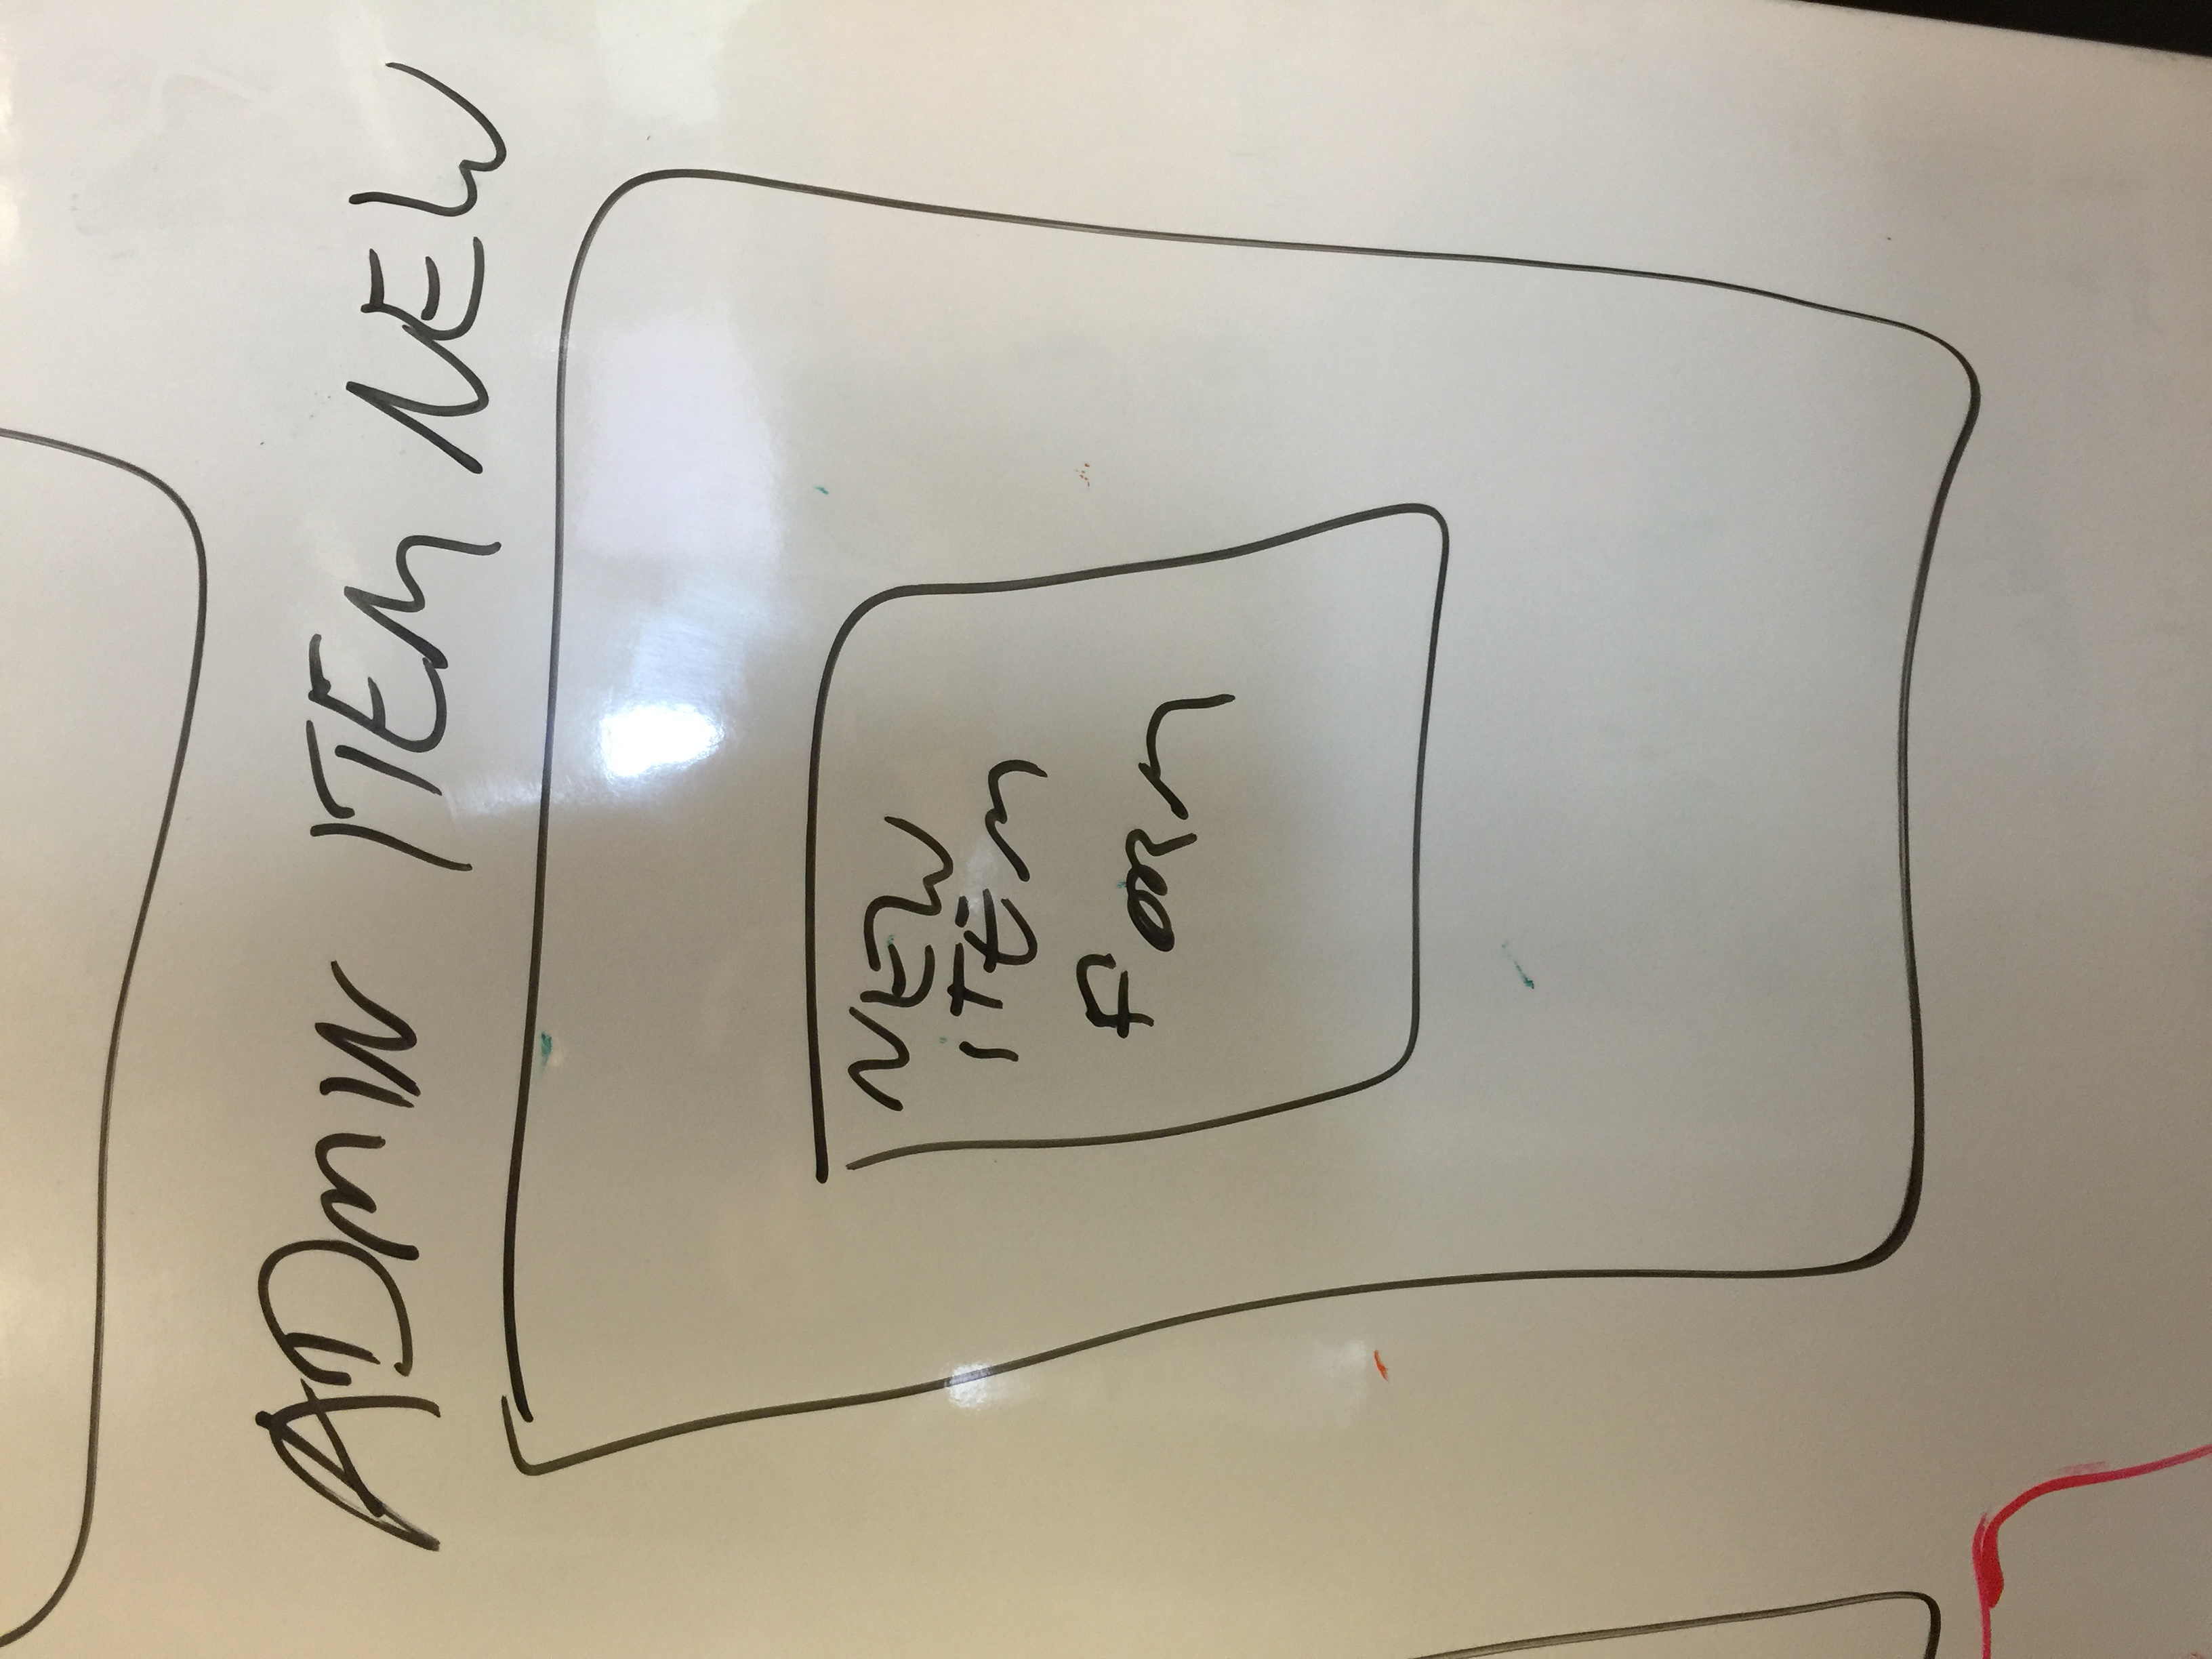 ADMIN ITEM NEW
NEW
ITEM
FORM